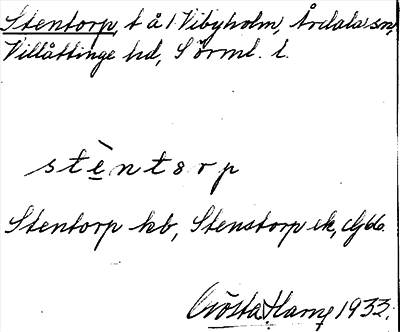 Stentorp, t å 1 Vibyholm, Årdala sn,
Villåttinge hd, Sörml. l.
stèntorp
Stentorp kb, Stenstorp ek, djb.
Gösta Harng 1933.